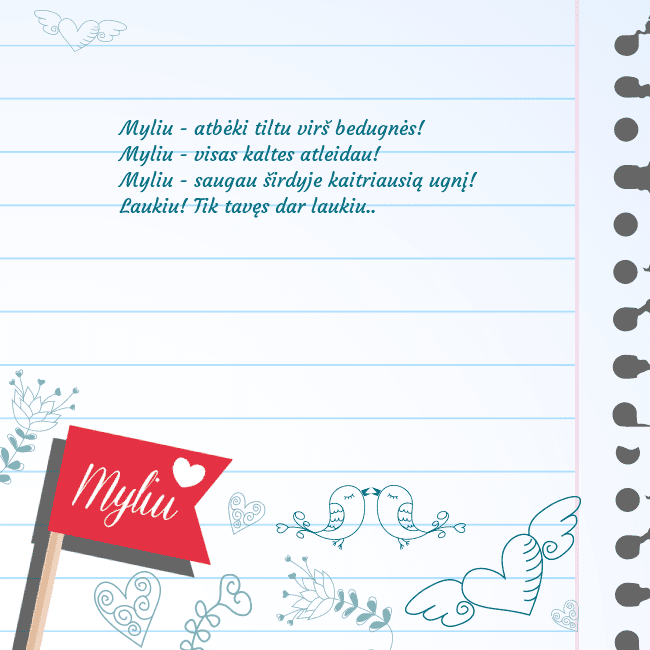 Myliu - atbėki tiltu virš bedugnės!
Myliu - visas kaltes atleidau!
Myliu - saugau širdyje kaitriausią ugnį!
Laukiu! Tik tavęs dar laukiu..
Myliu